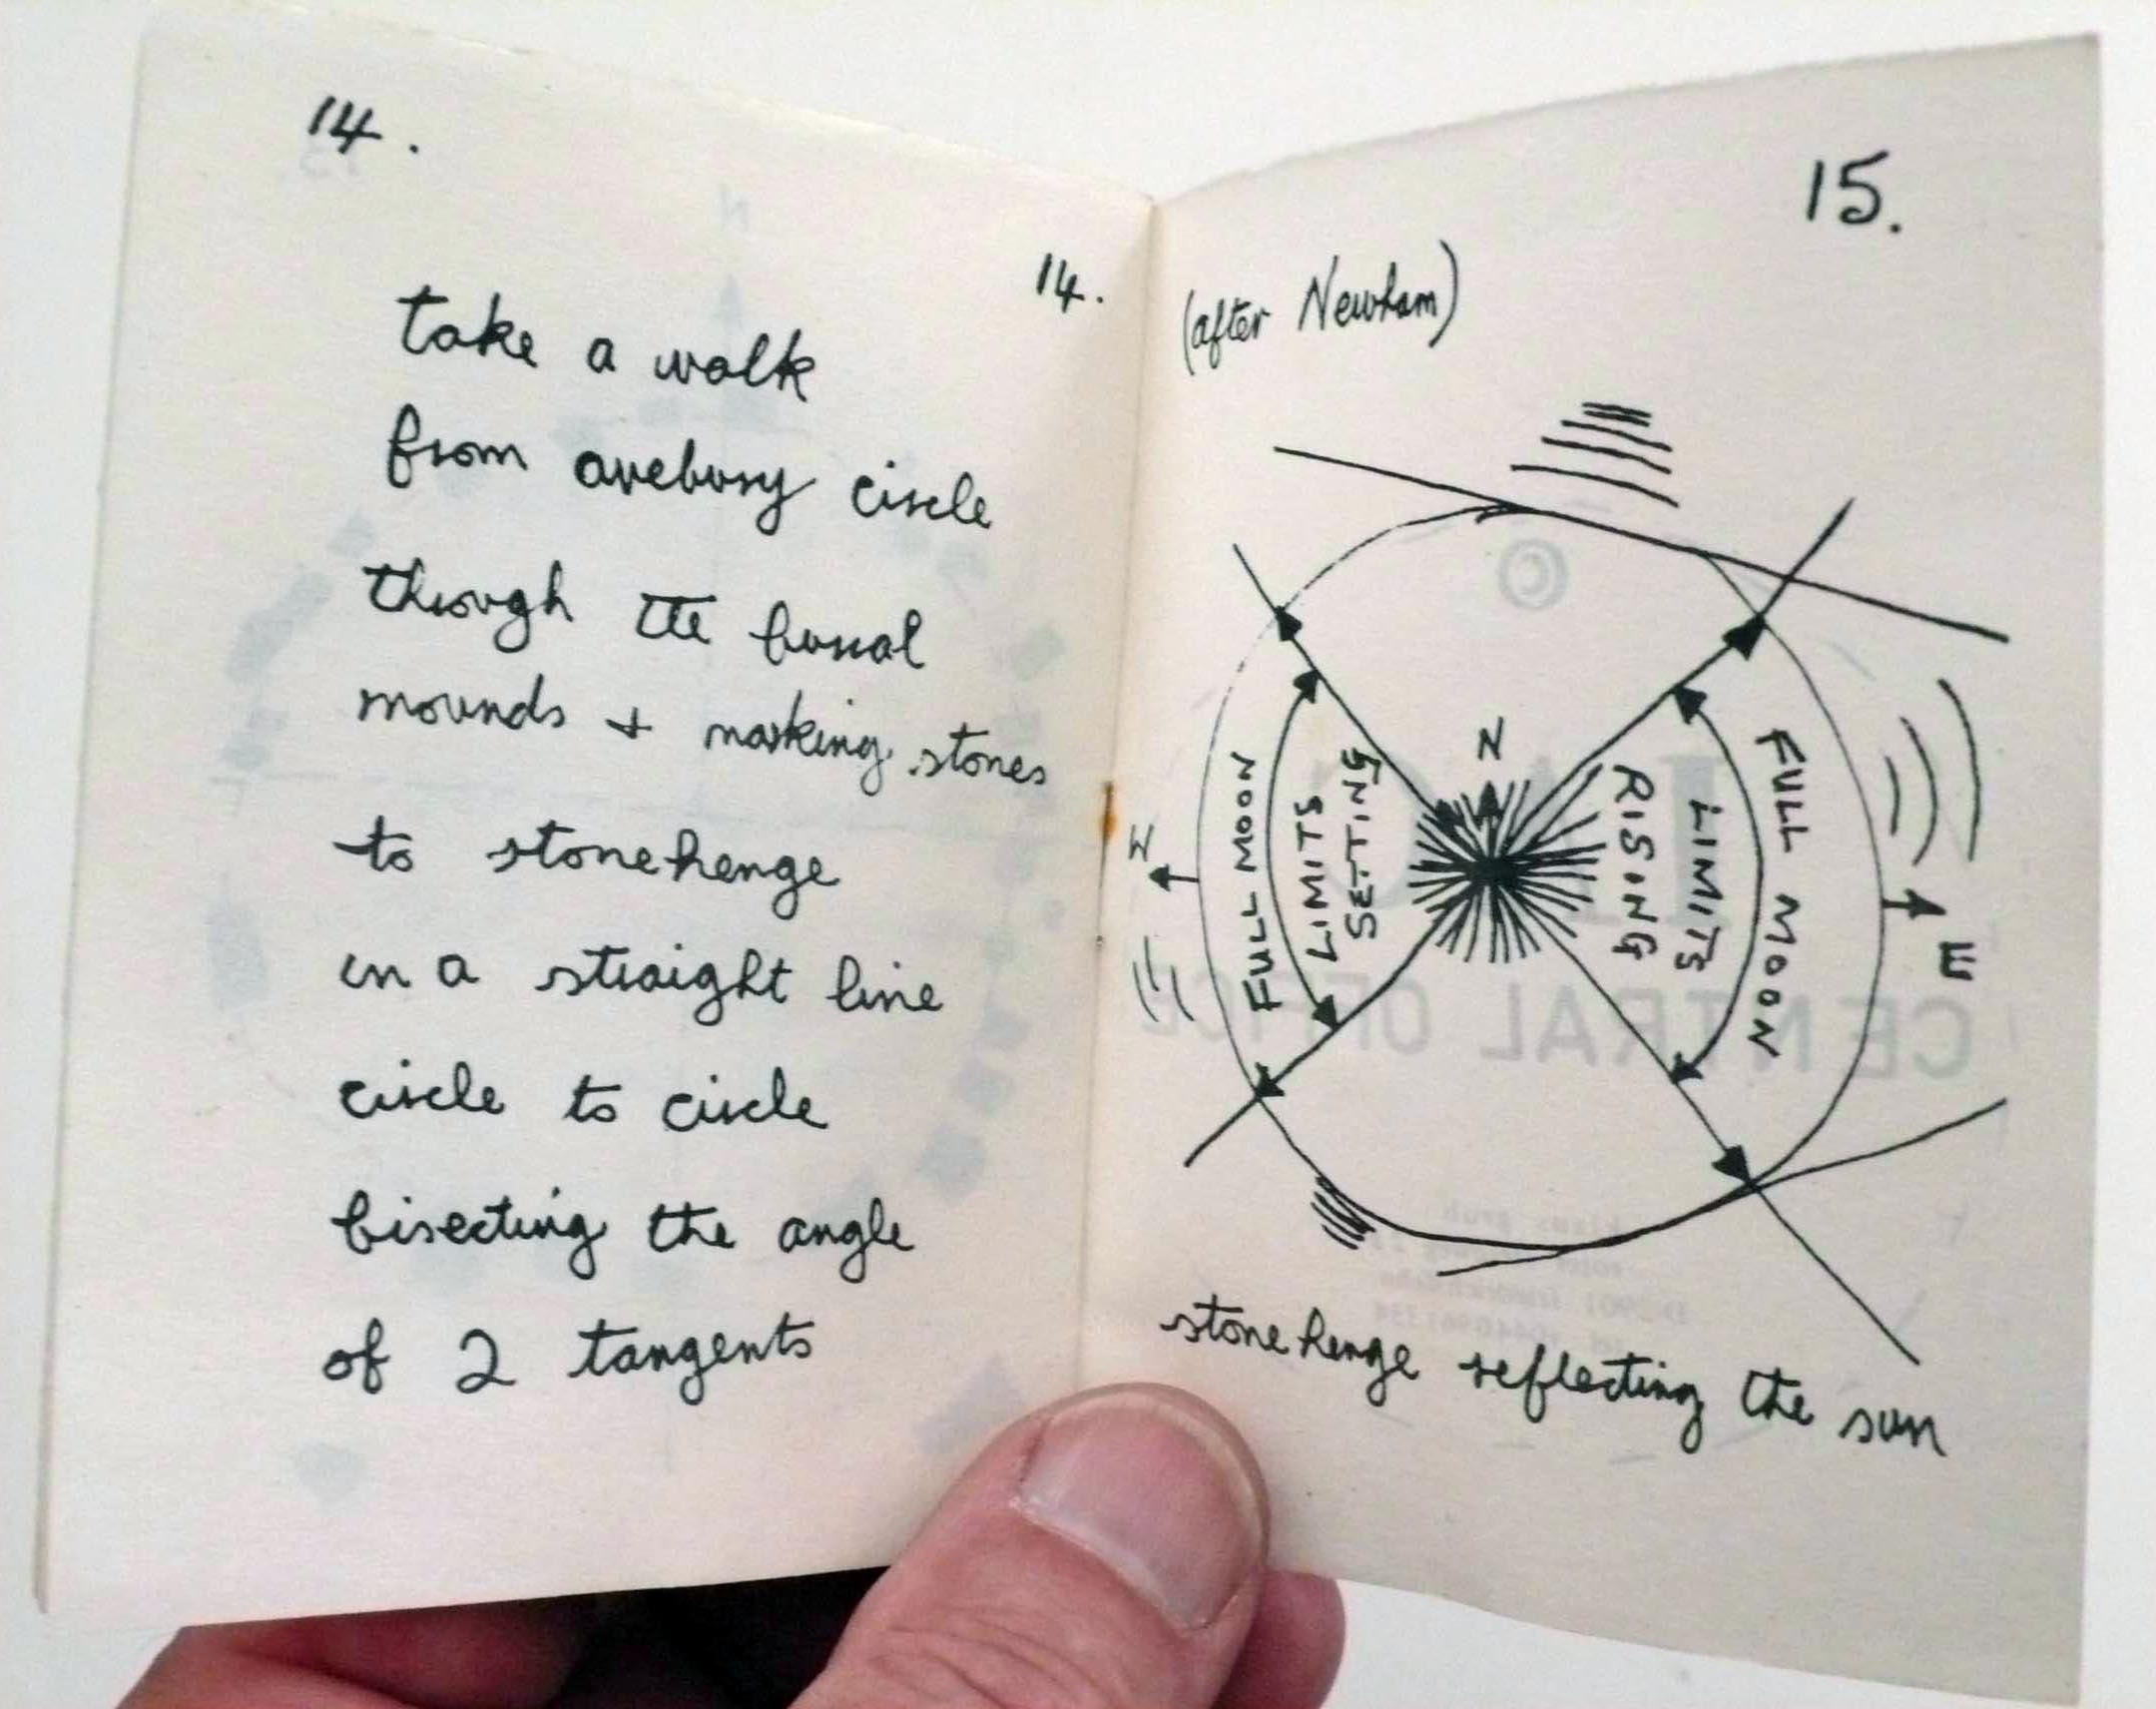 14.
take a walk
from avebury circle
through the burial
mounds + marking stones
to stonehenge
in a straight line
circle to circle
bisecting the angle
of 2 tangents
14.
15.
(after Newham)
N
W
E
FULL MOON
LIMITS
SETTING
RISING
LIMITS
FULL MOON
stonehenge reflecting the sun
©
CENTRAL OFFICE